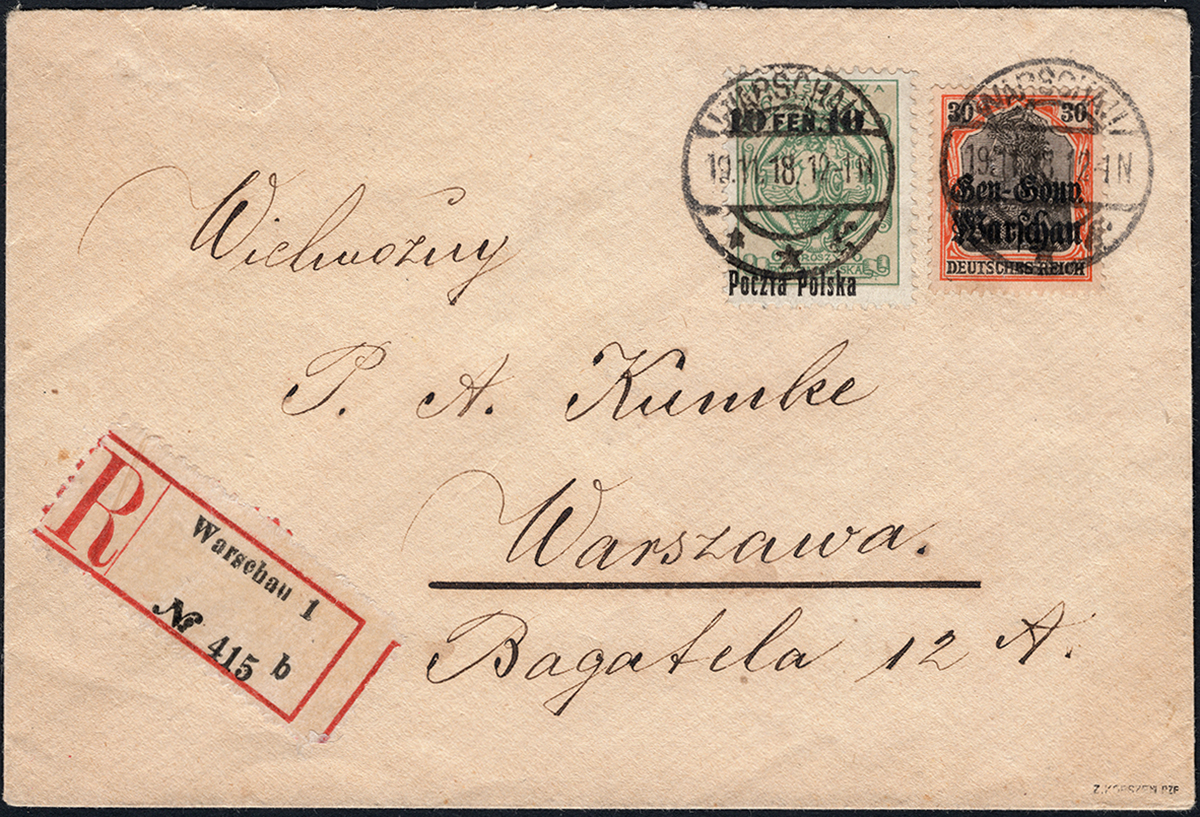 WARSCHAU
19.11.18. 12-1 N
10 FEN. 10
Poczta Polska
WARSCHAU
19.11.18. 12-1 N
30 30
Gen.-Gouv.
Warschau
DEUTSCHES REICH
Wielmożny
P. A. Kumke
Warszawa.
Bagatela 12 A.
R
Warschau 1
№ 415 b